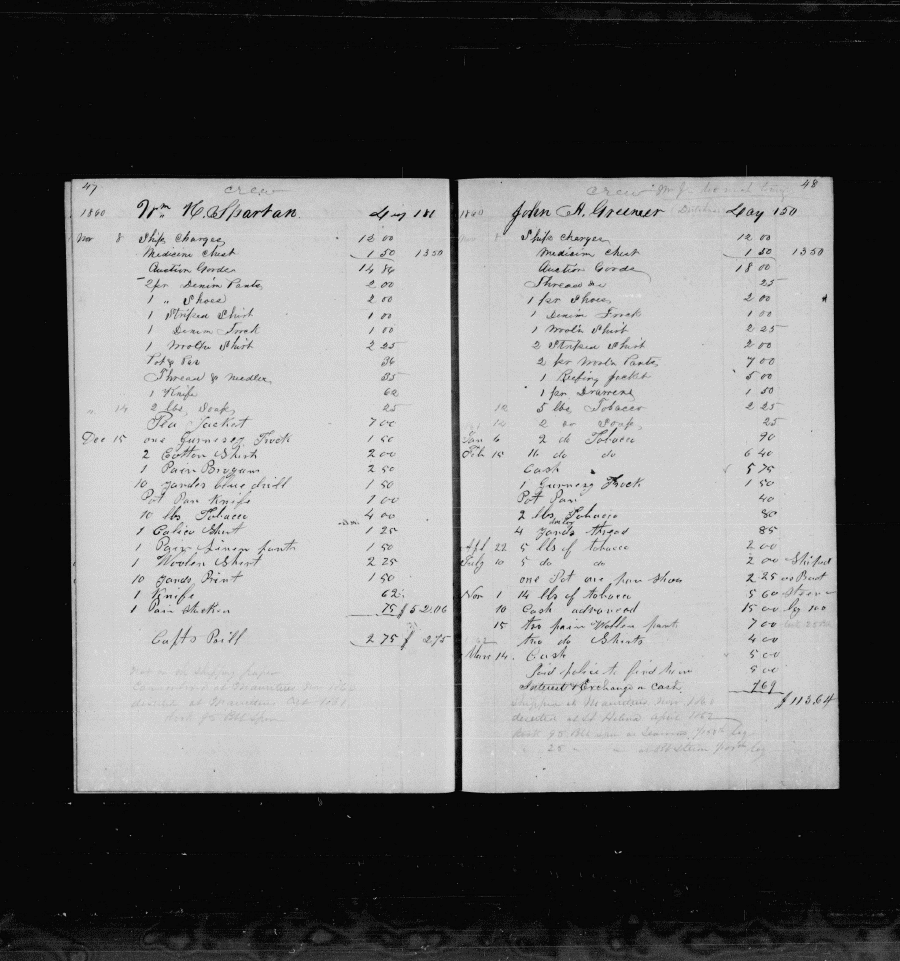 47
crew
1860 Wm H. Spartan. Lay 180
Nov 8 Ship Charges 12 00
Medicine Chest 1 50 13 50
Auction Goods 14 86
2 pr Denim Pants 2 00
1 " Shoes 2 00
1 Striped Shirt 1 00
1 Denim Frock 1 00
1 Woolen Shirt 2 25
Pot & Pan 36
Thread & needles 35
1 Knife 62
" 14 2 lbs Soap 25
Pea Jacket 7 00
Dec 15 one Gurnesey Frock 1 50
2 Cotton Shirts 2 00
1 Pair Brogans 2 50
10 yards blue drill 1 50
Pot Pan Knife 1 00
10 lbs Tobacco 4 00
1 Calico Shirt 1 25
1 Pair Linen pants 1 50
1 Woolen Shirt 2 25
10 yards Print 1 50
1 Knife 62
1 Pair 75 $52.06
Capts Bill 2 75 $ 2.75
shipping paper
at Mauritius Nov
deserted at
48
crew
1860 John A. Greener Lay 150
Nov 8 Ship Charges 12 00
Medicine Chest 1 50 13 50
Auction Goods 18 00
Thread &c 25
1 pr Shoes 2 00
1 Denim Frock 1 00
1 Wooln Shirt 2 25
2 Striped Shirts 2 00
2 pr Wooln Pants 7 00
1 Reefing Jacket 5 00
1 pr Drawers 1 50
12 5 lbs Tobacco 2 25
2 Soap 25
Jan 6 2 do Tobacco 90
Feb 15 16 do do 6 40
Cash 5 75
1 Gurnesey Frock 1 50
Pot Pan 40
2 lbs Tobacco 80
4 yards thread 85
Apl 22 5 lbs of tobacco 2 00
July 10 5 do do 2 00 Shiped
one Pot one pair Shoes 2 25 as Boat
Nov 1 14 lbs of tobacco 5 60
10 Cash advanced 15 00 lay 100
15 two pair Wollen pants 7 00
two do Shirts 4 00
Mar 14. Cash 5 00
Paid police to find him 5 00
Interest & Exchange on Cash, 7 69
$113.64
Shipped at Mauritius Nov
deserted at St Helena April 1862